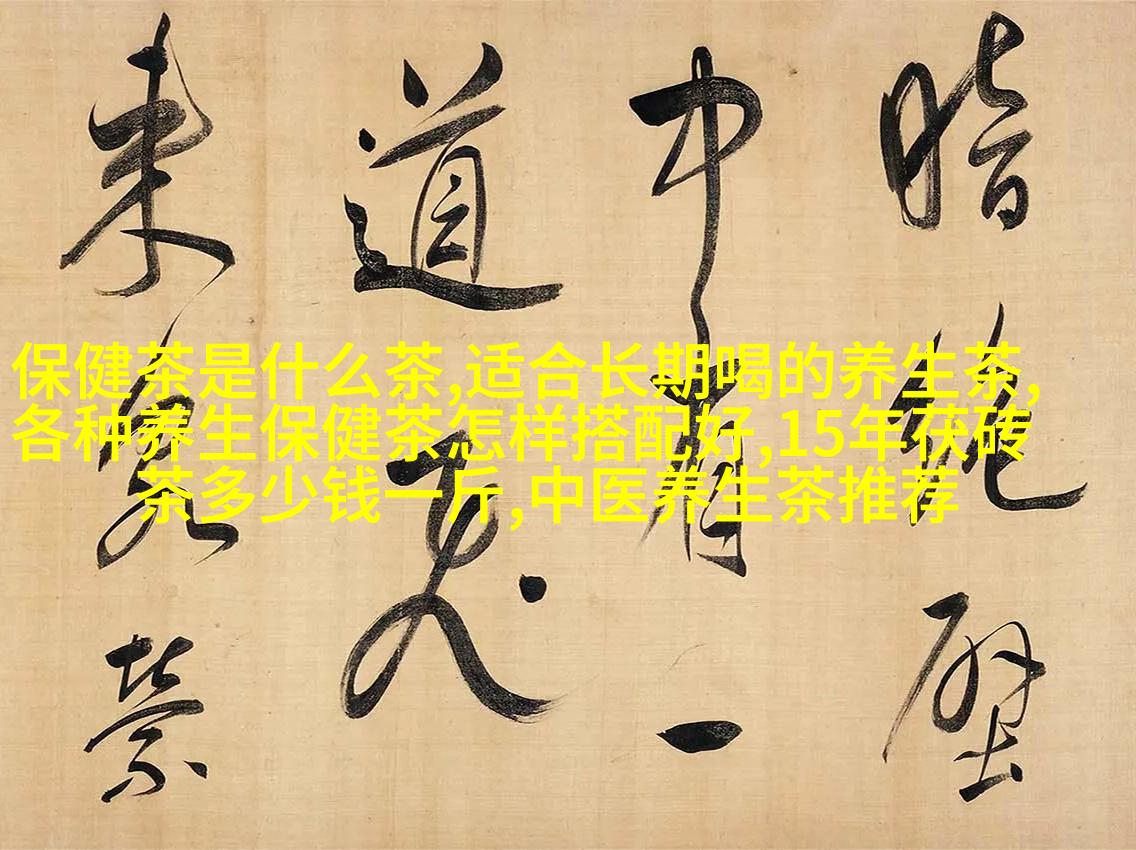 保健茶是什么茶,适合长期喝的养生茶,
各种养生保健茶怎样搭配好,15年茯砖
茶多少钱一斤,中医养生茶推荐
暗絶壁
中有一
道飛
来泉縈